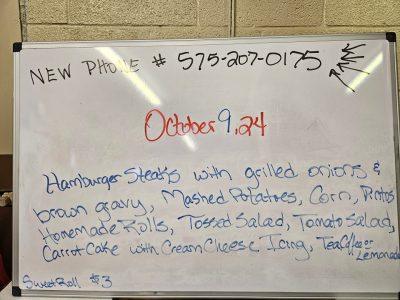 NEW PHONE # 575-207-0175
October 9, 24
Hamburger Steaks with grilled onions &
brown gravy, Mashed Potatoes, Corn, Pintos
Homemade Rolls, Tossed Salad, Tomato Salad,
Carrot Cake with Cream Cheese Icing, Tea Coffee or
Lemonade
Sweet Roll $3